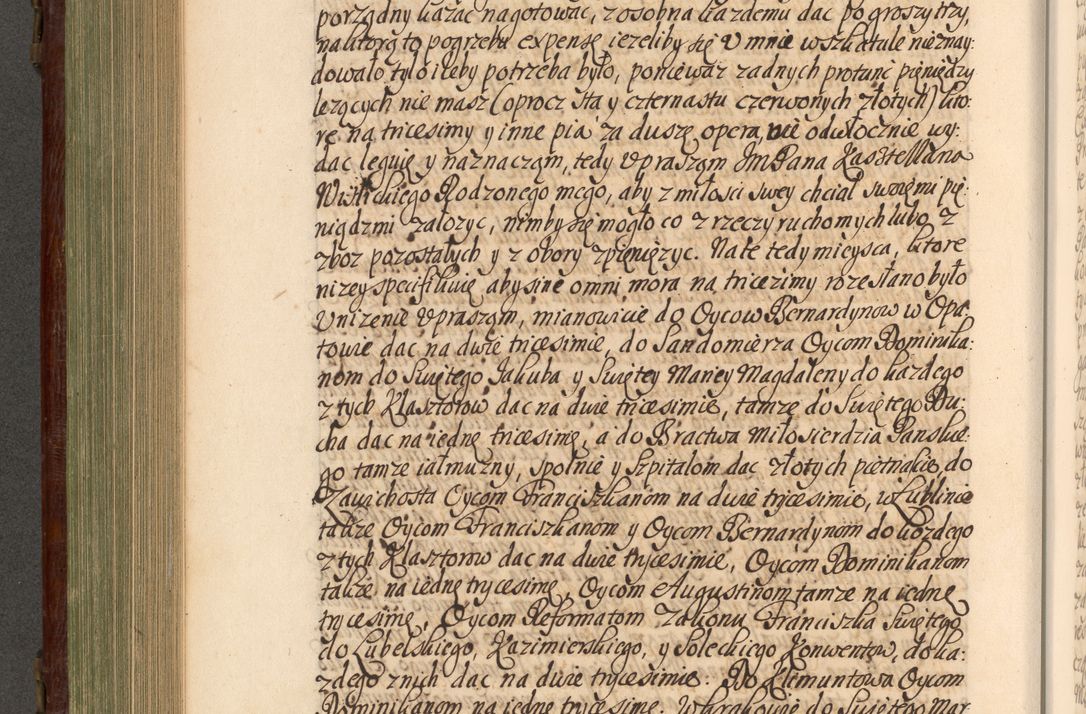 porządny kazac nagotowac, z osobna kazdemu dac po groszy trzy,
na ktorą to pogrzebu expensę iezeliby się v mnie w szkatule nieznay:
dowało tylo ileby potrzeba było, poniewaz zadnych protunc pięniędzy
lezących nie masz (oprocz sta y czternastu czerwonych złotych) kto:
re na tricesimy y inne pia za duszę opera, nie odwłocznie wy:
dac leguię y naznaczam, tedy vpraszam JmPana Kasztellana
Wislickiego Rodzonego mego, aby z miłosci swey chciał swoiemi pię:
niądzmi załozyc, nimby się mogło co z rzeczy ruchomych lubo z
zboz pozostałych y z obory zpienięzyc. Na te tedy mieysca, ktore
nizey specifikuię aby sine omni mora na tricezimy rozesłano było
Vnizenie vpraszam, mianowicie do Oycow Bernardynow w Opa:
towie dac na dwie tricesimie, do Sandomierza Oycom Dominika:
nom do Swiętego Jakuba y Swiętey Maryey Magdaleny do kazdego
z tych Klasztorow dac na dwie tricesimie, tamze do Swiętego Du:
cha dac na iednę tricesimę, a do Bractwa Miłosierdzia Panskie:
go tamze iałmuzny, spolnie y Szpitalom dac złotych piętnascie, do
Zawichosta Oycom Franciszkanom na dwie trycesimie, w Lublinie
takze Oycom Franciszkanom y Oycom Bernardynom do kozdego
z tych Klasztorow dac na dwie trycesimie, Oycom Dominikanom
takze na iednę trycesimę, Oycom Augustinom tamze na iednę
trycesimę, Oycom Reformatom Zakonu Franciszka Swiętego
do Lubelskiego, Kazimierskiego, y Soleckiego Konwentow, do ka:
zdego z nich dac na dwie trycesimie. Do Klimuntowa Oycom
Dominikanom na iednę tricesimę. W Krakowie do Swiętego Mar